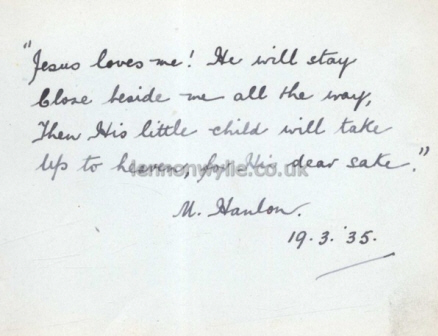 "Jesus loves me! He will stay
Close beside me all the way,
Then His little child will take
Up to heaven, for His dear sake."
lennonwylie.co.uk
M. Hanlon.
19.3.'35.